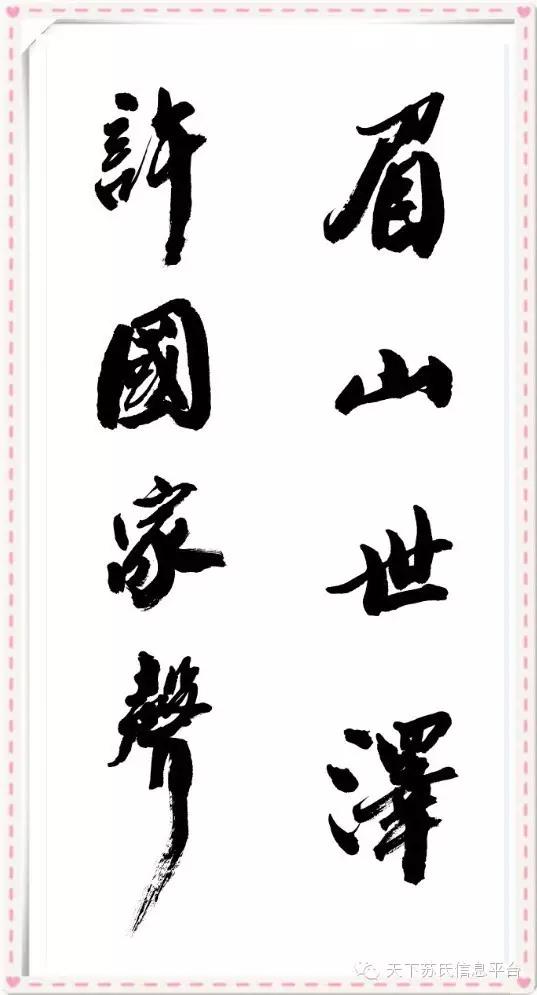 眉山世澤
許國家聲
天下苏氏信息平台